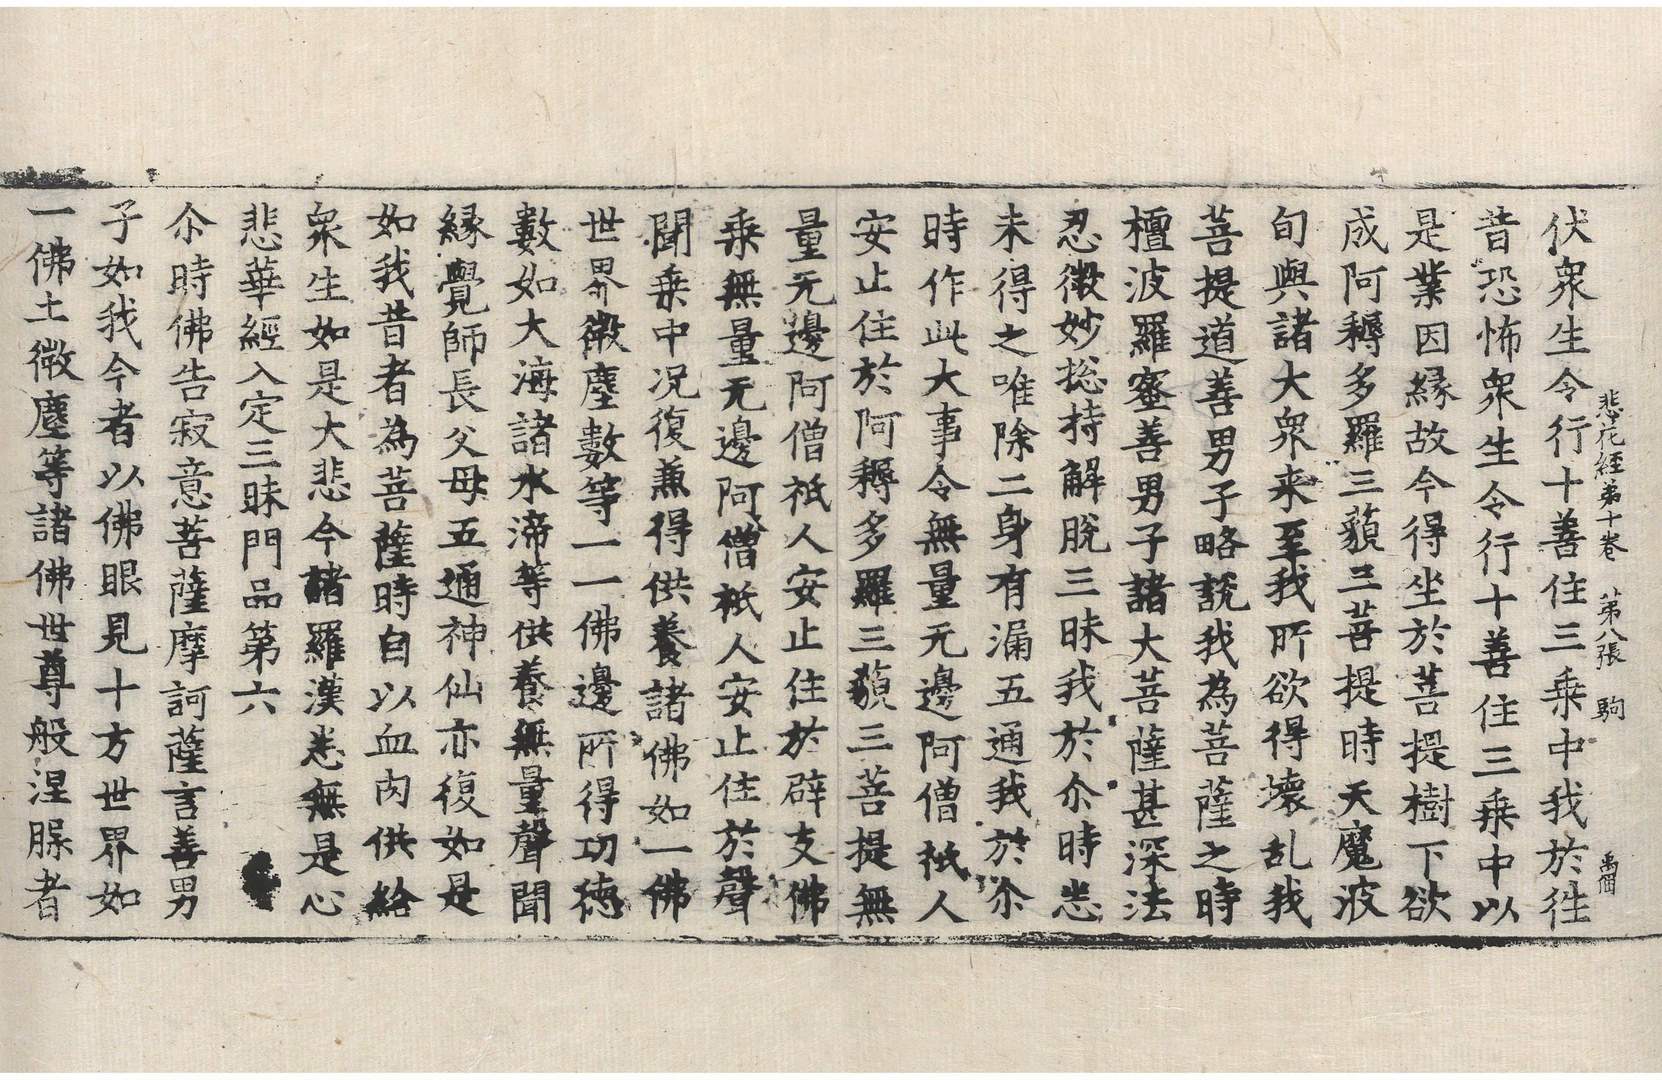 悲花經第十卷　第八張　駒
伏衆生令行十善住三乗中我於徃
昔恐怖衆生令行十善住三乗中以
是業因縁故今得坐於菩提樹下欲
成阿耨多羅三藐三菩提時天魔波
旬與諸大衆来至我所欲得壊乱我
菩提道善男子略説我為菩薩之時
檀波羅蜜善男子諸大菩薩甚深法
忍微妙捴持解脫三昧我於尒時悉
未得之唯除二身有漏五通我於尒
時作此大事令無量无邊阿僧祇人
安止住於阿耨多羅三藐三菩提無
量无邊阿僧祇人安止住於辟支佛
乗無量无邊阿僧祇人安止住於聲
聞乗中况復兼得供養諸佛如一佛
世界微塵數等一一佛邊所得功徳
數如大海諸水渧等供養無量聲聞
縁覺師長父母五通神仙亦復如是
如我昔者為菩薩時自以血肉供給
衆生如是大悲今諸羅漢悉無是心
悲華經入定三昧門品第六
尒時佛告寂意菩薩摩訶薩言善男
子如我今者以佛眼見十方世界如
一佛土微塵等諸佛世尊般涅脲者